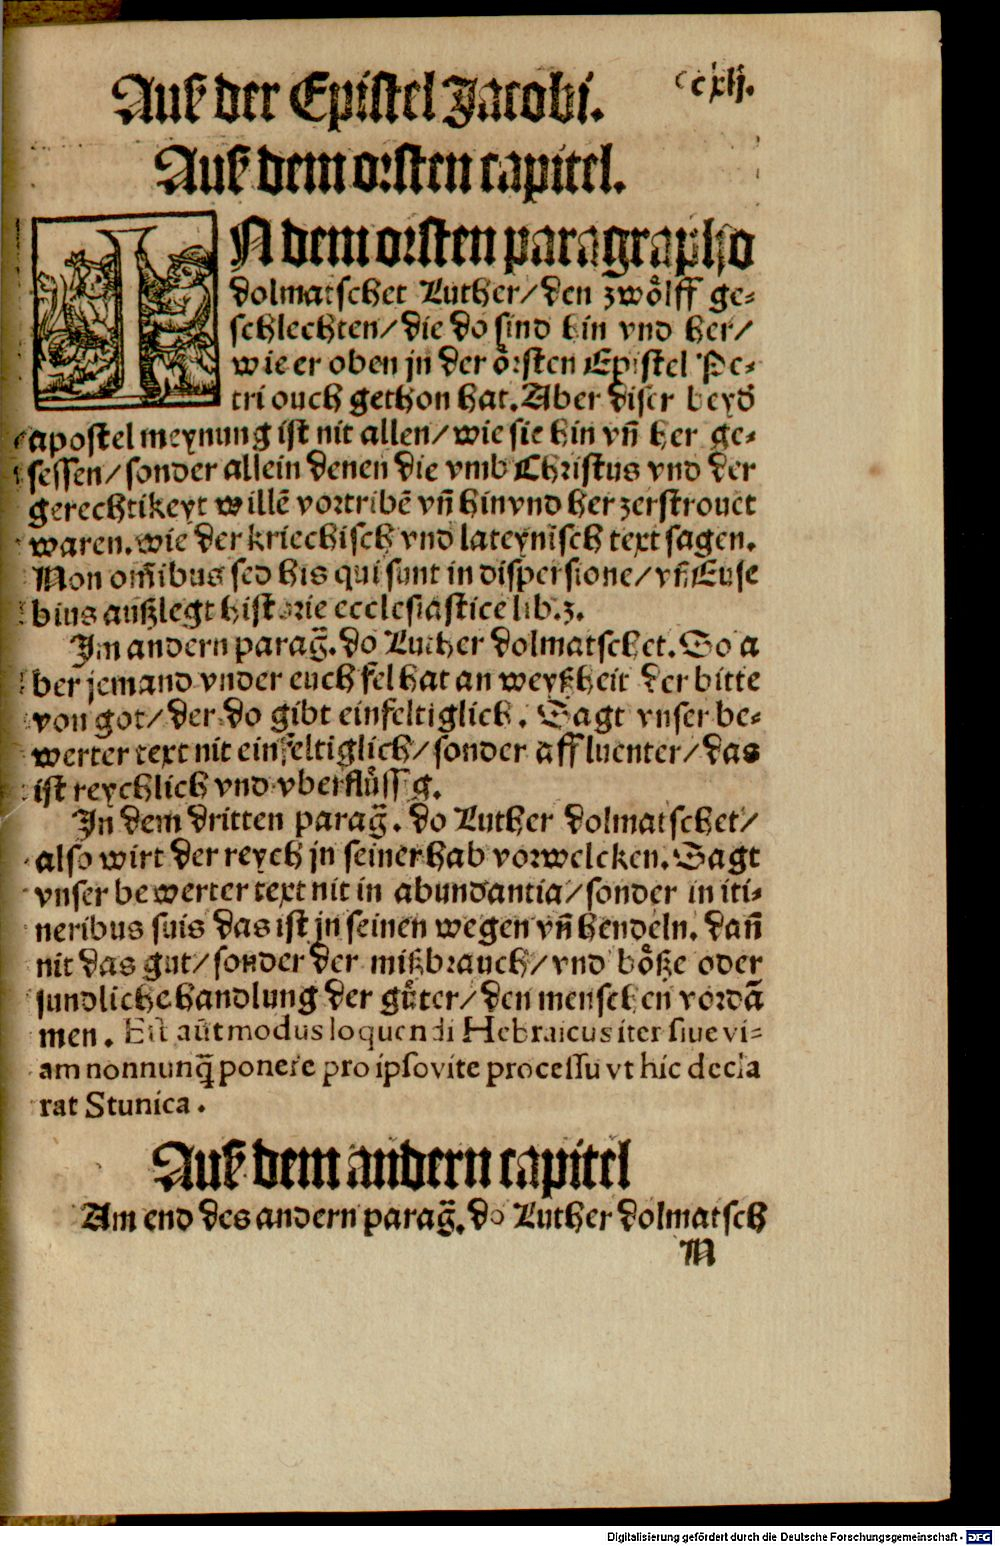 Auß der Epistel Jacobi. ccxlj.
Auß dem orsten capitel.
IN dem orsten paragrapho
dolmatschet Luther/ den zwoͤlff ge⸗
schlechten/ die do sind hin vnd her/
wie er oben jn der oͤrsten Epistel Pe⸗
tri ouch gethon hat. Aber diser beyd̄
apostel meynung ist nit allen/ wie sie hin vn̄ her ge⸗
sessen/ sonder allein denen die vmb Christus vnd der
gerechtikeyt willē vortribē vn̄ hin vnd her zerstrouet
waren. wie der kriechisch vnd lateynisch text sagen.
Non om̄ibus sed his qui sunt in dispersione/ vn̄ Euse
bius außlegt historie ecclesiastice lib. 3.
Im andern parag̃. do Luther dolmatschet. So a
ber jemand vnder euch fel hat an weyßheit der bitte
von got/ der do gibt einfeltiglich. Sagt vnser be⸗
werter text nit einfeltiglich/ sonder affluenter/ das
ist reychlich vnd vberfluͤssig.
In dem dritten parag̃. do Luther dolmatschet/
also wirt der reych jn seiner hab vorwelcken. Sagt
vnser bewerter text nit in abundantia/ sonder in iti⸗
neribus suis das ist jn seinen wegen vn̄ hendeln. dan̄
nit das gut/ sonder der mißbrauch/ vnd boͤße oder
sundliche handlung der guͤter/ den menschen vordā
men. Est aūt modus loquendi Hebraicus iter siue vi⸗
am nonnunq̃ ponere pro ipso vite processu vt hic decla
rat Stunica.
Auß dem andern capitel
Am end des andern parag̃. do Luther dolmatsch
M
Digitalisierung gefördert durch die Deutsche Forschungsgemeinschaft - DFG